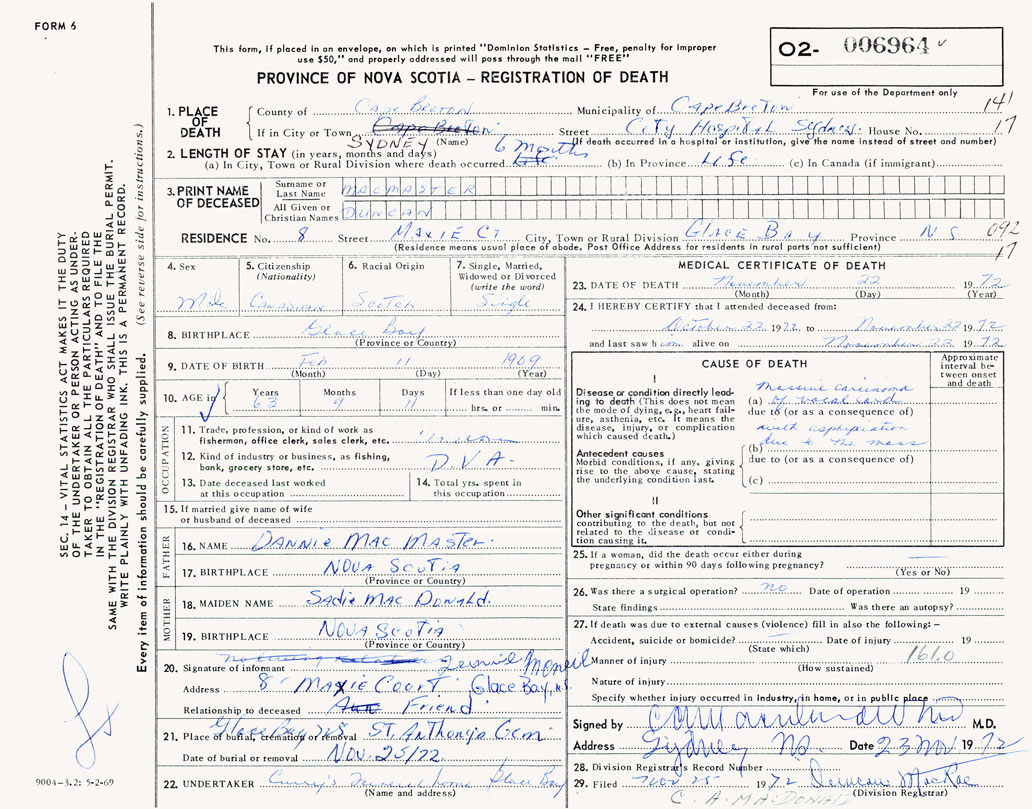 FORM 6
This form, if placed in an envelope, on which is printed "Dominion Statistics – Free, penalty for improper
use $50," and properly addressed will pass through the mail "FREE"
PROVINCE OF NOVA SCOTIA – REGISTRATION OF DEATH
O2- 006964
For use of the Department only
141
17
1. PLACE OF DEATH
County of Cape Breton Municipality of Cape Breton
If in City or Town Cape Breton Street City Hospital Sydney House No.
SYDNEY (Name) (If death occurred in a hospital or institution, give the name instead of street and number)
2. LENGTH OF STAY (in years, months and days) 6 Months
(a) In City, Town or Rural Division where death occurred Life (b) In Province Life (c) In Canada (if immigrant)
3. PRINT NAME OF DECEASED
Surname or Last Name MACMASTER
All Given or Christian Names DUNCAN
RESIDENCE No. 8 Street Maxie Ct City, Town or Rural Division Glace Bay Province N S
(Residence means usual place of abode. Post Office Address for residents in rural parts not sufficient)
092
17
4. Sex Male
5. Citizenship (Nationality) Canadian
6. Racial Origin Scotch
7. Single, Married, Widowed or Divorced (write the word) Single
8. BIRTHPLACE Glace Bay
(Province or Country)
9. DATE OF BIRTH Feb 11 1909
(Month) (Day) (Year)
10. AGE in Years 63 Months 9 Days 11 If less than one day old hrs. or min.
OCCUPATION
11. Trade, profession, or kind of work as fisherman, office clerk, sales clerk, etc.
12. Kind of industry or business, as fishing, bank, grocery store, etc. D.V.A.
13. Date deceased last worked at this occupation
14. Total yrs. spent in this occupation
15. If married give name of wife or husband of deceased
FATHER
16. NAME Dannie Mac Master
17. BIRTHPLACE Nova Scotia
(Province or Country)
MOTHER
18. MAIDEN NAME Sadie Mac Donald
19. BIRTHPLACE Nova Scotia
(Province or Country)
20. Signature of informant McNeil
Address 8 Maxie Court, Glace Bay, N.S
Relationship to deceased Friend
21. Place of burial, cremation or removal Glace Bay NS St. Anthony's Cem
Date of burial or removal Nov. 25/72
22. UNDERTAKER Curry's Funeral home Glace Bay
(Name and address)
MEDICAL CERTIFICATE OF DEATH
23. DATE OF DEATH November 22 1972
(Month) (Day) (Year)
24. I HEREBY CERTIFY that I attended deceased from:
October 22 1972 to November 22 1972
and last saw him alive on November 22 1972
CAUSE OF DEATH
Approximate interval between onset and death
I
Disease or condition directly leading to death (This does not mean the mode of dying, e.g., heart failure, asthenia, etc. It means the disease, injury, or complication which caused death.)
Massive carcinoma
(a) of vocal cord
due to (or as a consequence of)
with asphyxiation
(b) due to the mass
due to (or as a consequence of)
(c)
Antecedent causes
Morbid conditions, if any, giving rise to the above cause, stating the underlying condition last.
II
Other significant conditions
contributing to the death, but not related to the disease or condition causing it.
25. If a woman, did the death occur either during pregnancy or within 90 days following pregnancy?
(Yes or No)
26. Was there a surgical operation? no Date of operation 19
State findings Was there an autopsy?
27. If death was due to external causes (violence) fill in also the following: –
Accident, suicide or homicide? Date of injury 19
(State which)
Manner of injury 161.0
(How sustained)
Nature of injury
Specify whether injury occurred in industry, in home, or in public place
Signed by M.D.
Address Sydney NS. Date 23 Nov 1972
28. Division Registrar's Record Number
29. Filed Nov 25 1972 Duncan MacRae
(Division Registrar)
C. A. MACDONALD
SEC. 14 – VITAL STATISTICS ACT MAKES IT THE DUTY
OF THE UNDERTAKER OR PERSON ACTING AS UNDER-
TAKER TO OBTAIN ALL THE PARTICULARS REQUIRED
IN THE "REGISTRATION OF DEATH" AND TO FILE THE
SAME WITH THE DIVISION REGISTRAR WHO SHALL ISSUE THE BURIAL PERMIT.
WRITE PLAINLY WITH UNFADING INK. THIS IS A PERMANENT RECORD.
Every item of information should be carefully supplied. (See reverse side for instructions.)
9004-3.2: 5-2-69